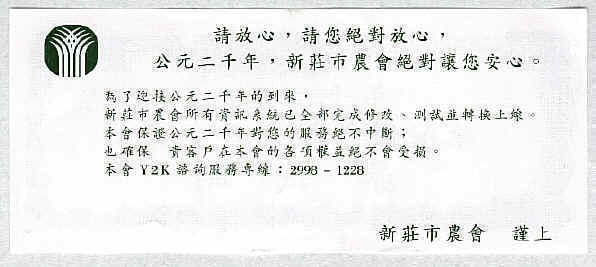 請放心，請您絕對放心，
公元二千年，新莊市農會絕對讓您安心。
為了迎接公元二千年的到來，
新莊市農會所有資訊系統已全部完成修改、測試並轉換上線。
本會保證公元二千年對您的服務絕不中斷；
也確保　貴客戶在本會的各項權益絕不會受損。
本會 Y2K 諮詢服務專線：2998-1228
新莊市農會　謹上